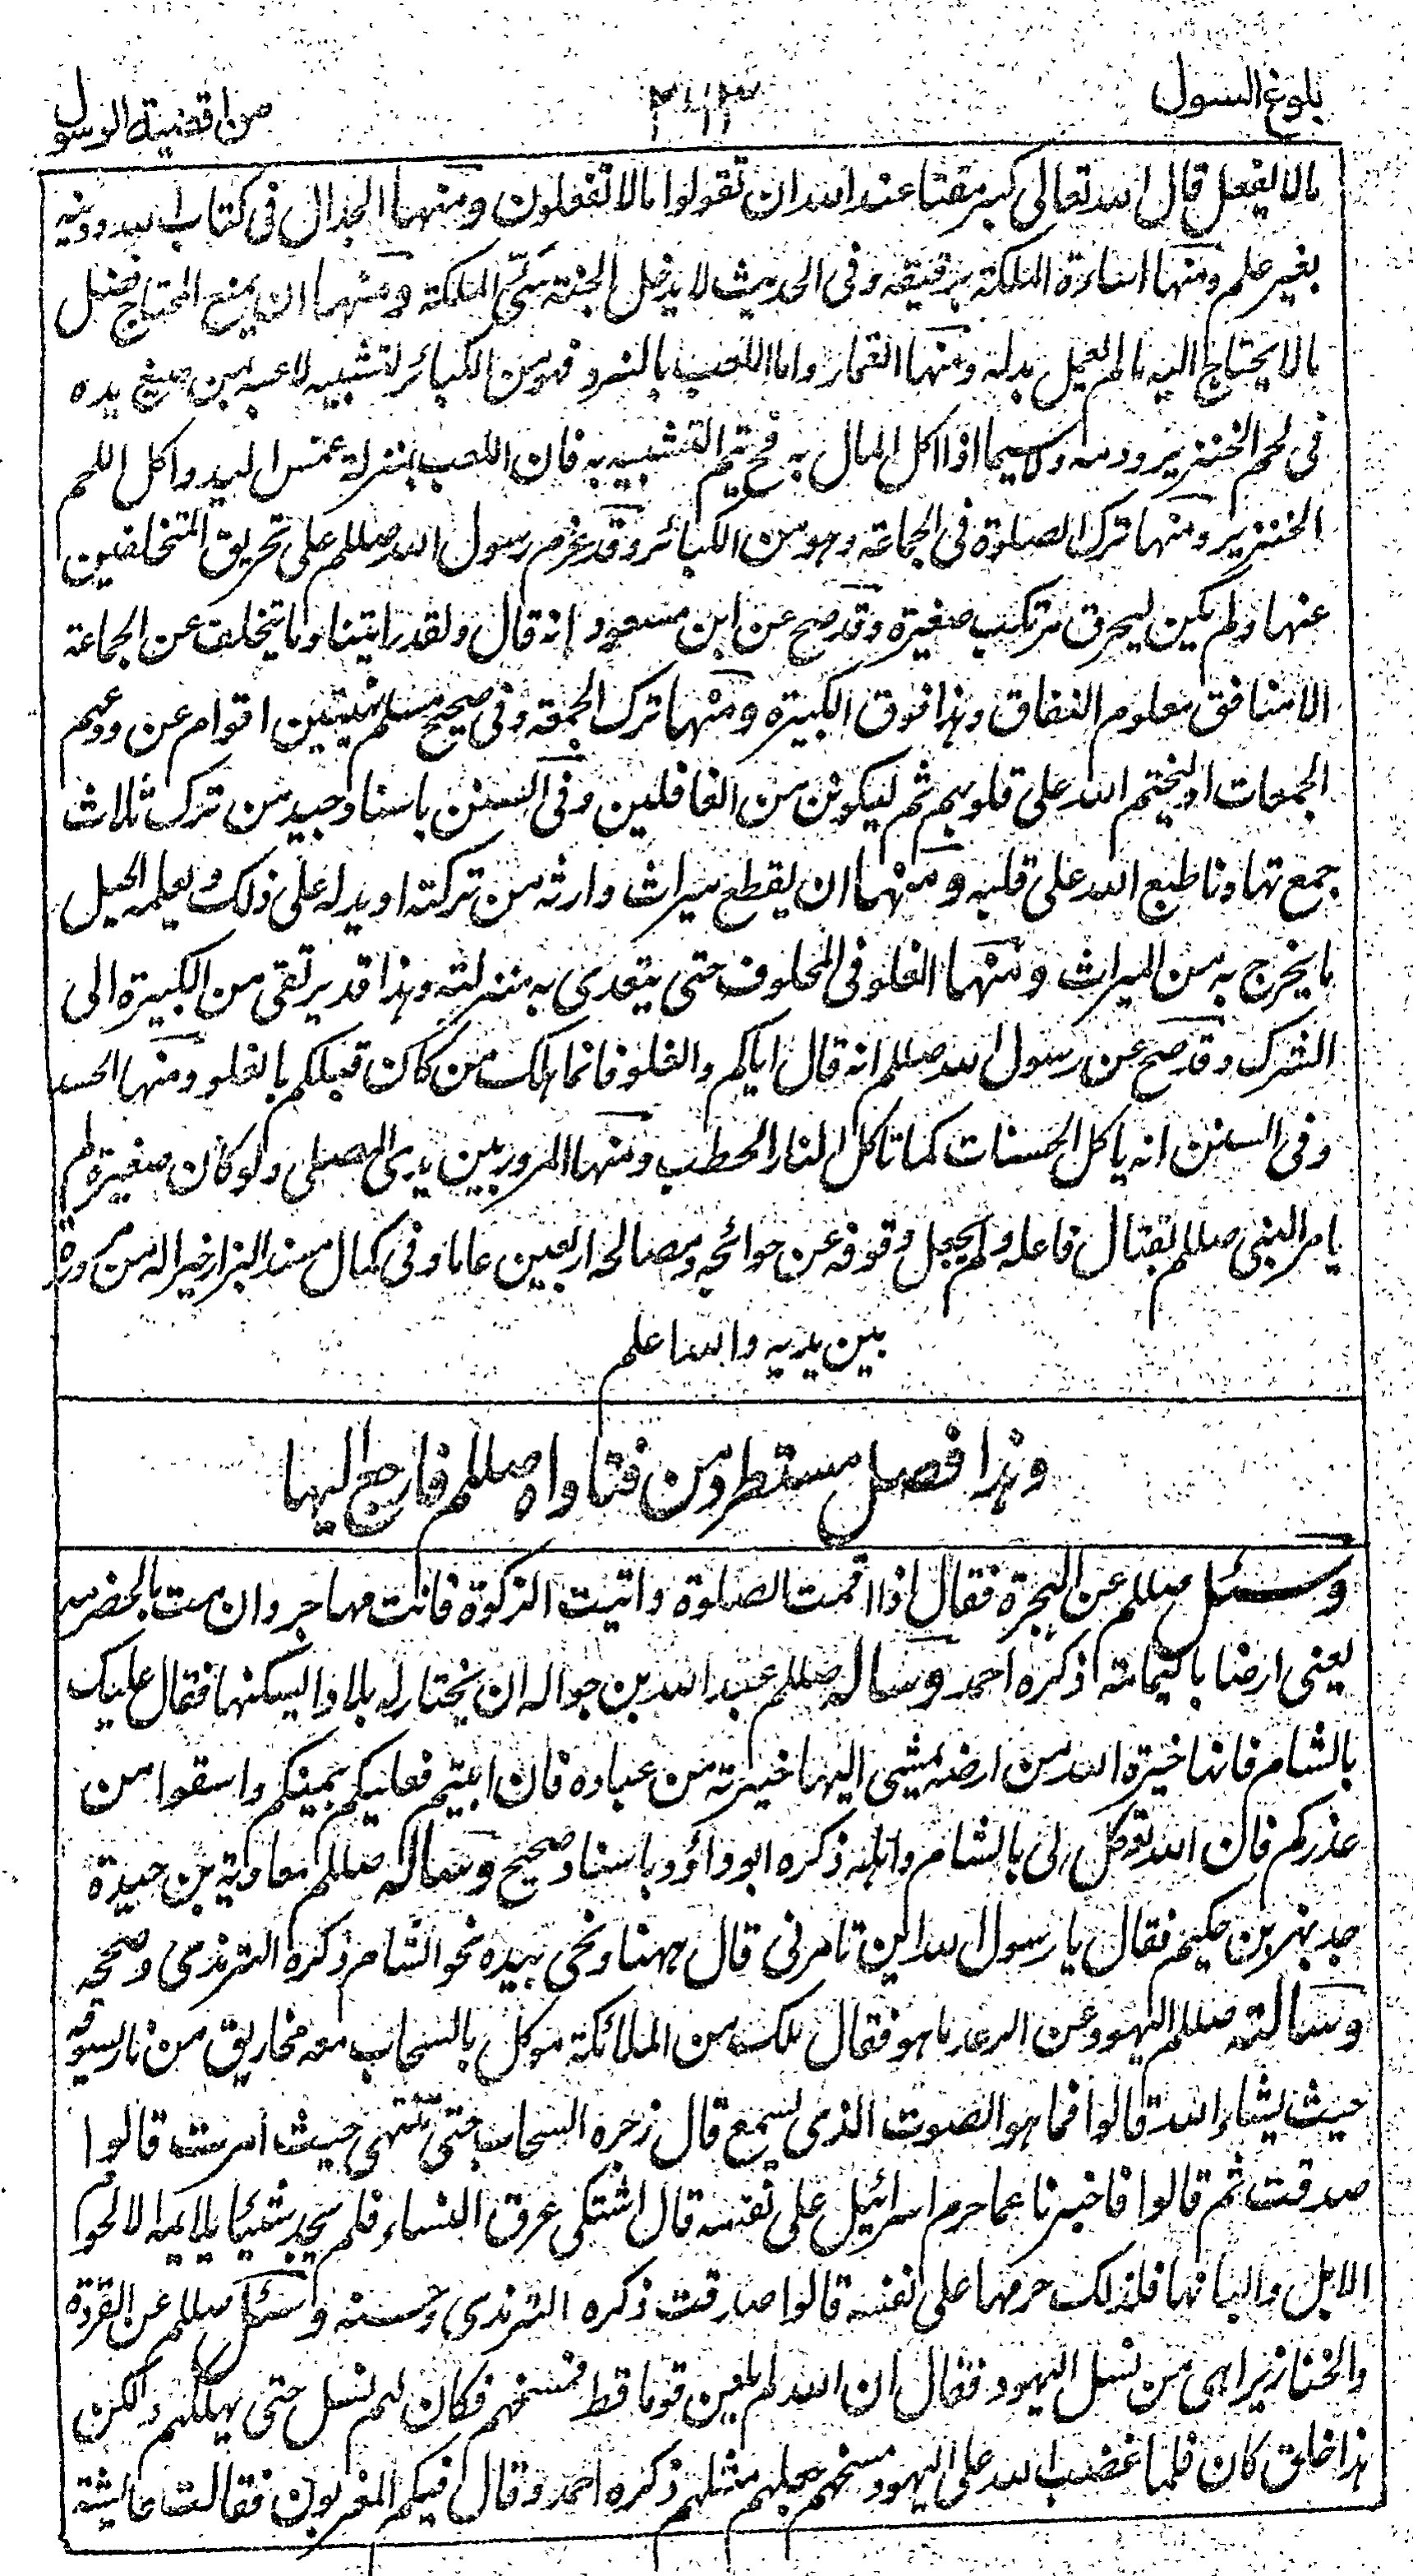 بلوغ السول ٣١٣ من اقضية الرسول
مالا يفعل قال الله تعالى كبر مقتا عند الله ان تقولوا مالا تفعلون ومنها الجدال في كتاب الله ودينه
بغير علم ومنها اساءة الملكة برقيقه وفي الحديث لا يدخل الجنة سئ الملكة ومنها ان يمنع المحتاج فضل
مالا يحتاج اليه مالم تعمل يداه ومنها القمار واما اللعب بالنرد فهو من الكبائر لتشبيه لاعبه بمن صبغ يده
في لحم الخنزير ودمه ولا سيما اذا اكل المال به فح يتم التشبيه به فان اللعب بمنزلة غمس اليد واكل اللحم
الخنزير ومنها ترك الصلوة في الجماعة وهو من الكبائر وقد عزم رسول الله صللم على تحريق المتخلفين
عنها ولم يكن ليحرق مرتكب صغيرة وقد صح عن ابن مسعود انه قال ولقد رايتنا وما يتخلف عن الجماعة
الا منافق معلوم النفاق وهذا فوق الكبيرة ومنها ترك الجمعة وفي صحيح مسلم لينتهين اقوام عن ودعهم
الجمعات او ليختم الله على قلوبهم ثم ليكونن من الغافلين وفي السنن باسناد جيد من ترك ثلاث
جمع تهاونا طبع الله على قلبه ومنها ان يقطع ميراث وارثه من تركته او يدله على ذلك ويعلمه الحيل
ما يخرج به من الميراث ومنها الغلو في المخلوق حتى يتعدى به منزلته وهذا قد يرتقي من الكبيرة الى
الشرك وقد صح عن رسول الله صللم انه قال اياكم والغلو فانما هلك من كان قبلكم بالغلو ومنها الحسد
وفي السنن انه ياكل الحسنات كما تاكل النار الحطب ومنها المرور بين يدي المصلي ولو كان صغيرة لم
يامر النبي صللم بقتال فاعله ولم يجعل وقوفه عن حوائجه ومصالحه اربعين عاما وفي كمال مسند البزار خيرا له من مروره
بين يديه والله اعلم
وهذا فصل مستطرد من فتاواه صللم فارجع اليها
وسئل صللم عن الهجرة فقال اذا اقمت الصلوة واتيت الزكوة فانت مهاجر وان مت بالحضرمة
يعني ارضا باليمامة ذكره احمد وساله صللم عبد الله بن حوالة ان يختار له بلادا يسكنها فقال عليك
بالشام فانها خيرة الله من ارضه يجتبي اليها خيرته من عباده فان ابيتم فعليكم بيمنكم واسقوا من
غدركم فان الله توكل لي بالشام واهله ذكره ابو داؤد باسناد صحيح وساله صللم معاوية بن حيدة
جد بهز بن حكيم فقال يا رسول الله اين تامرني قال ههنا ونحى بيده نحو الشام ذكره الترمذي وصححه
وسالته صللم اليهود عن الرعد ما هو فقال ملك من الملائكة موكل بالسحاب معه مخاريق من نار يسوقه
حيث يشاء الله قالوا فما هو الصوت الذي يسمع قال زجره السحاب حتى تنتهي حيث امرت قالوا
صدقت ثم قالوا فاخبرنا عما حرم اسرائيل على نفسه قال اشتكى عرق النساء فلم يجد شيئا يلايمه الا لحوم
الابل والبانها فلذلك حرمها على نفسه قالوا صدقت ذكره الترمذي وحسنه وسئل صللم عن القردة
والخنازير اهي من نسل اليهود فقال ان الله لم يلعن قوما قط فمسخهم فكان لهم نسل حتى يهلكهم ولكن
هذا خلق كان فلما غضب الله على اليهود مسخهم جعلهم مثلهم ذكره احمد وقال فيكم المغربون فقالت عايشة